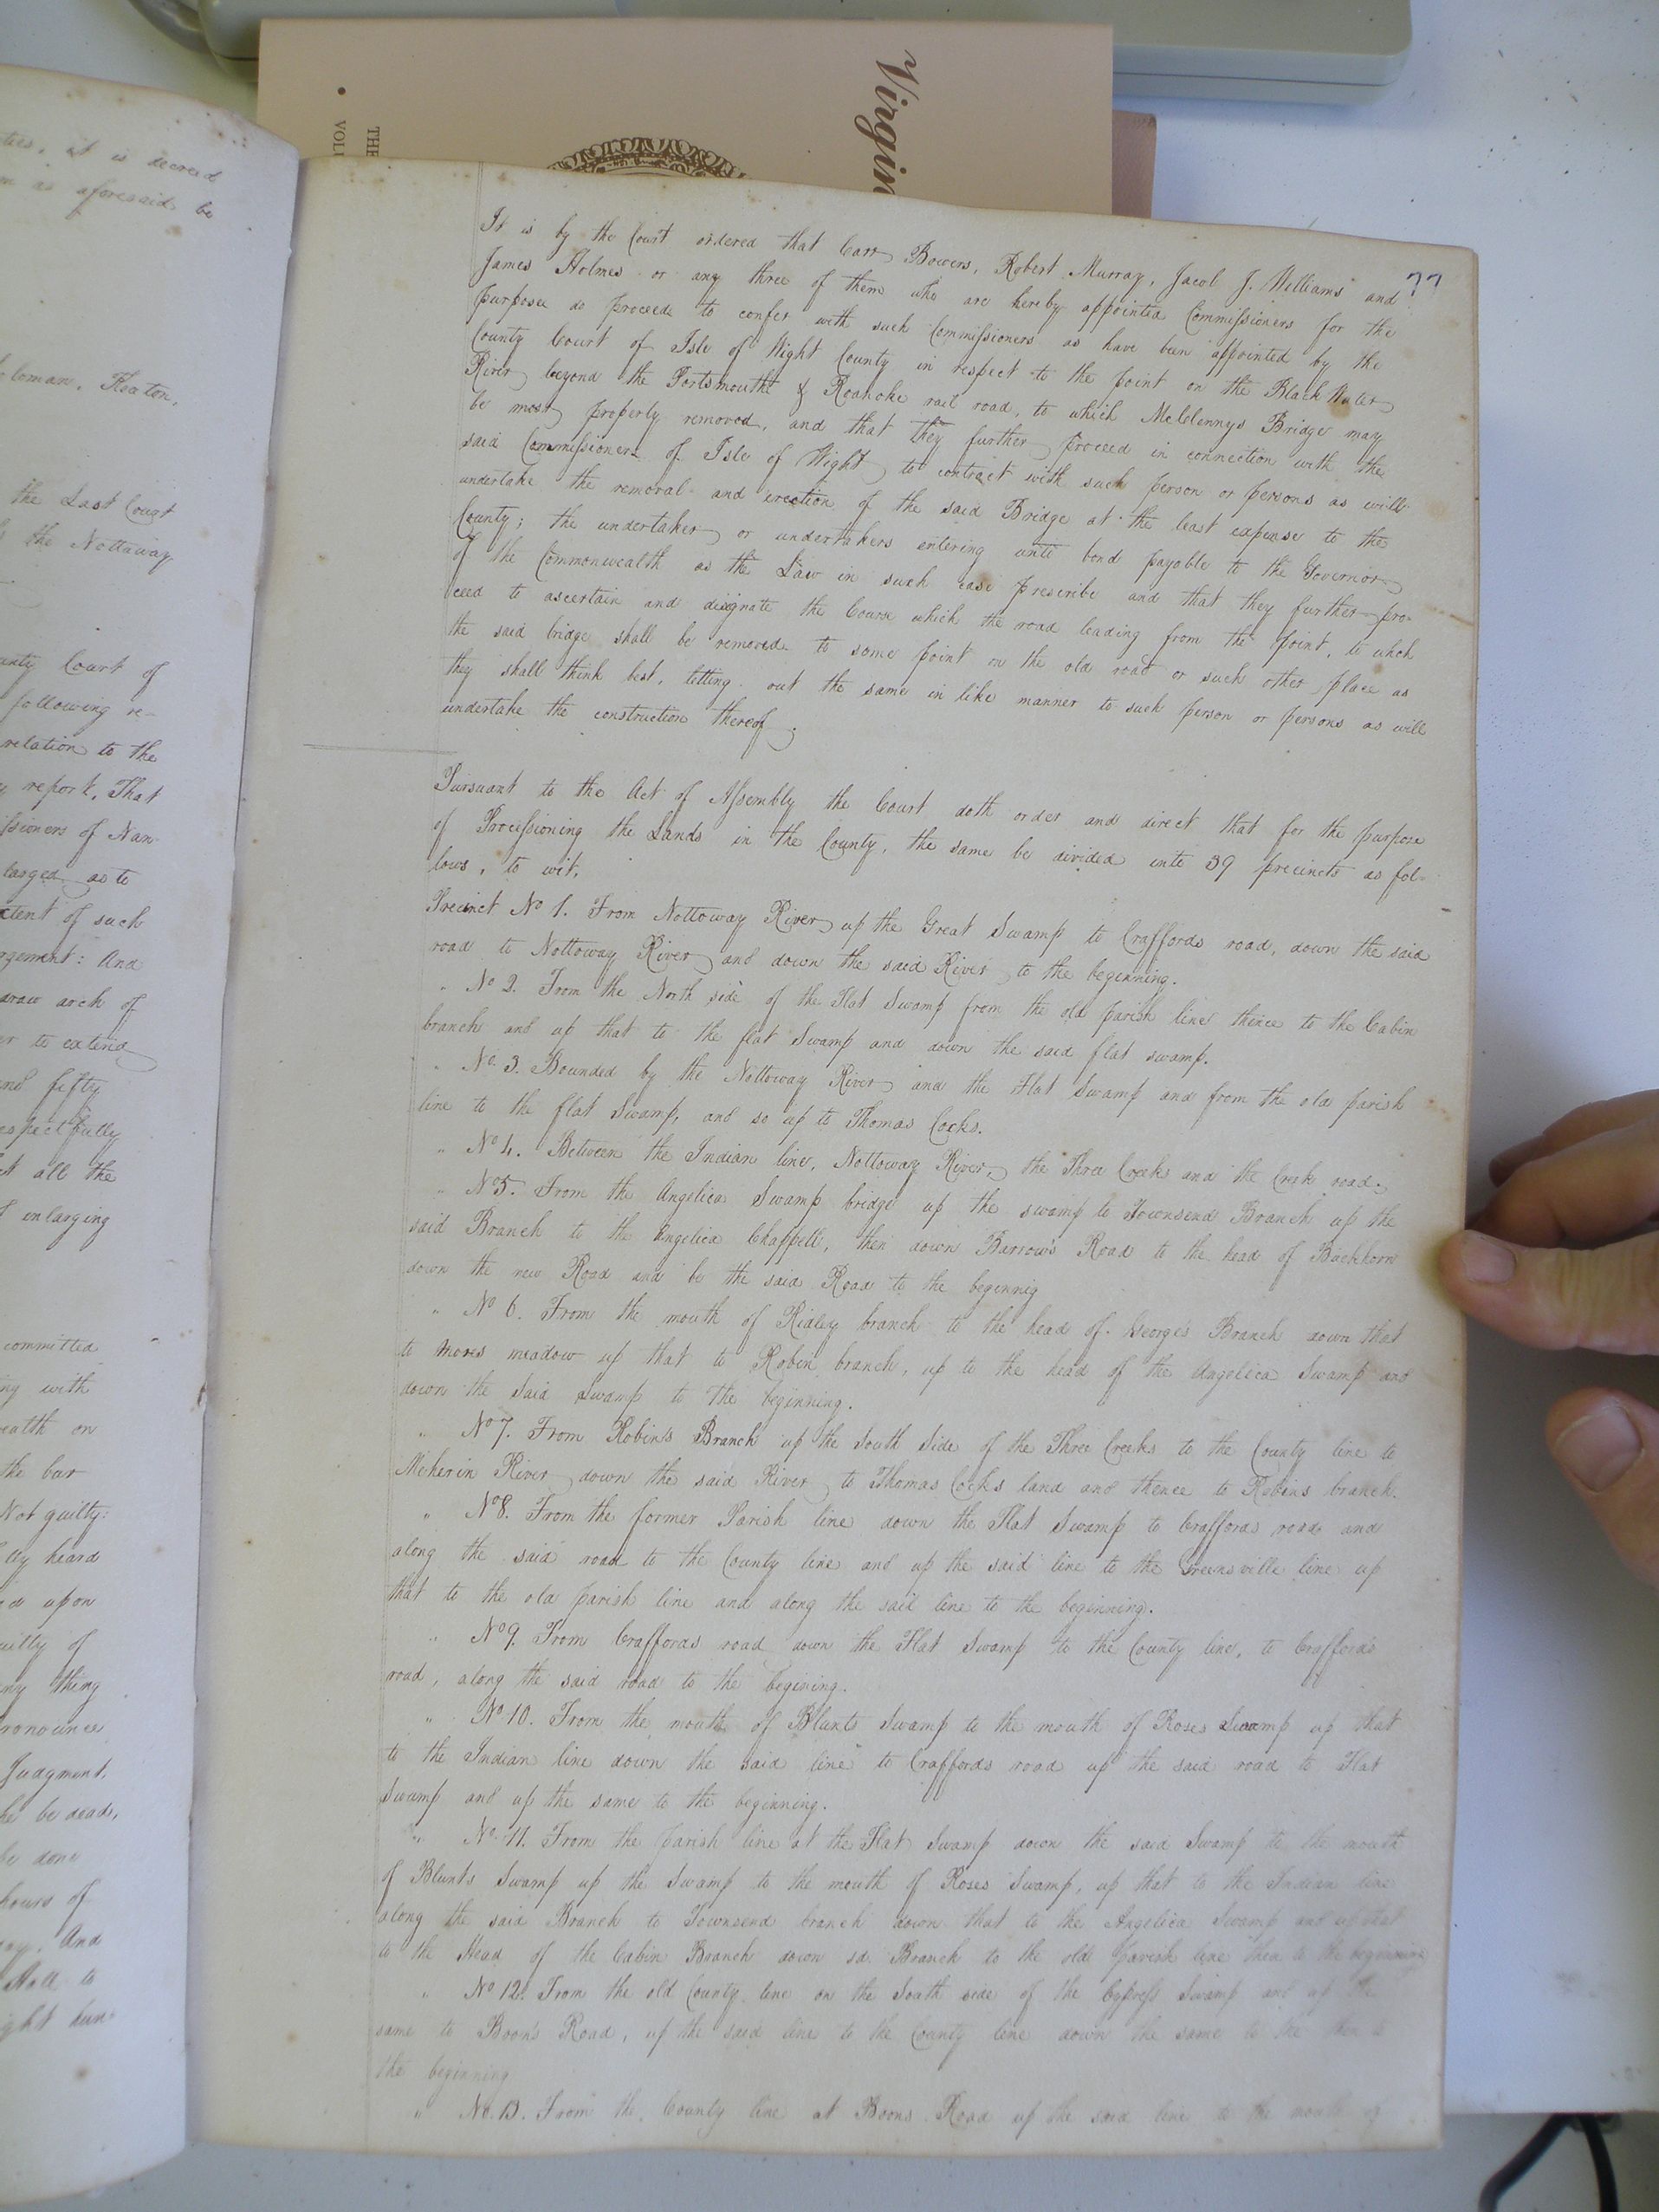 Virgin
THE
VOL
ties, it is decreed
as aforesaid be
loman, Keaton,
the Last Court
the Nottoway
unty Court of
following re-
relation to the
report, That
issioners of Nan-
larged as to
xtent of such
rgement: And
draw arch of
er to extend
and fifty
espectfully
all the
enlarging
committed
ing with
wealth on
the bar
Not guilty:
lly heard
upon
uilty of
any thing
ronounce
Judgment,
he be dead,
be done
hours of
And
Hall to
ight hun-
77
It is by the Court ordered that Carr Bowers, Robert Murray, Jacob J. Williams and
James Holmes or any three of them who are hereby appointed Commissioners for the
purpose do proceed to confer with such Commissioners as have been appointed by the
County Court of Isle of Wight County in respect to the point on the Black Water
River beyond the Portsmouth & Roanoke rail road, to which McClennys Bridge may
be most properly removed, and that they further proceed in connection with the
said Commissioners of Isle of Wight to contract with such person or persons as will
undertake the removal and erection of the said Bridge at the least expense to the
County; the undertaker or undertakers entering unto bond payable to the Governor
of the Commonwealth as the Law in such case prescribe and that they further pro-
ceed to ascertain and designate the Course which the road leading from the point, to which
the said bridge shall be removed to some point on the old road or such other place as
they shall think best, letting out the same in like manner to such person or persons as will
undertake the construction thereof.
Pursuant to the Act of Assembly the Court doth order and direct that for the purpose
of Processioning the Lands in the County, the same be divided into 39 precincts as fol-
lows, to wit,
Precinct No 1. From Nottoway River up the Great Swamp to Craffords road, down the said
road to Nottoway River and down the said River to the beginning.
" No 2. From the North side of the Flat Swamp from the old parish line thence to the Cabin
branch and up that to the flat Swamp and down the said flat swamp.
" No. 3. Bounded by the Nottoway River and the Flat Swamp and from the old parish
line to the flat Swamp, and so up to Thomas Cocks.
" No 4. Between the Indian line, Nottoway River, the Three Creeks and the Creek road.
" No 5. From the Angelica Swamp bridge up the swamp to Townsend Branch up the
said Branch to the Angelica Chappell, then down Barrow's Road to the head of Buckhorn
down the new Road and be the said Road to the beginnig
" No 6. From the mouth of Ridley branch to the head of George's Branch down that
to mores meadow up that to Robin branch, up to the head of the Angelica Swamp and
down the Said Swamp to the beginning.
" No 7. From Robin's Branch up the South Side of the Three Creeks to the County line to
Meherin River down the said River to Thomas Cocks land and thence to Robins branch.
" No 8. From the former Parish line down the Flat Swamp to Craffords road and
along the said road to the County line and up the said line to the Greensville line up
that to the old parish line and along the said line to the beginning.
" No 9. From Craffords road down the Flat Swamp to the County line, to Crafford's
road, along the said road to the begining.
" No 10. From the mouth of Blunts Swamp to the mouth of Roses Swamp up that
to the Indian line down the said line to Craffords road up the said road to Flat
Swamp and up the same to the beginning.
" No. 11. From the parish line at the Flat Swamp down the said Swamp to the mouth
of Blunts Swamp up the Swamp to the mouth of Roses Swamp, up that to the Indian line
along the said Branch to Townsend branch down that to the Angelica Swamp and up that
to the Head of the Cabin Branch down sd. Branch to the old parish line then to the beginning
" No 12. From the old County line on the South side of the Cypress Swamp and up the
same to Boon's Road, up the said line to the County line down the same to the then to
the beginning
" No. 13. From the County line at Boons Road up the said line to the mouth of